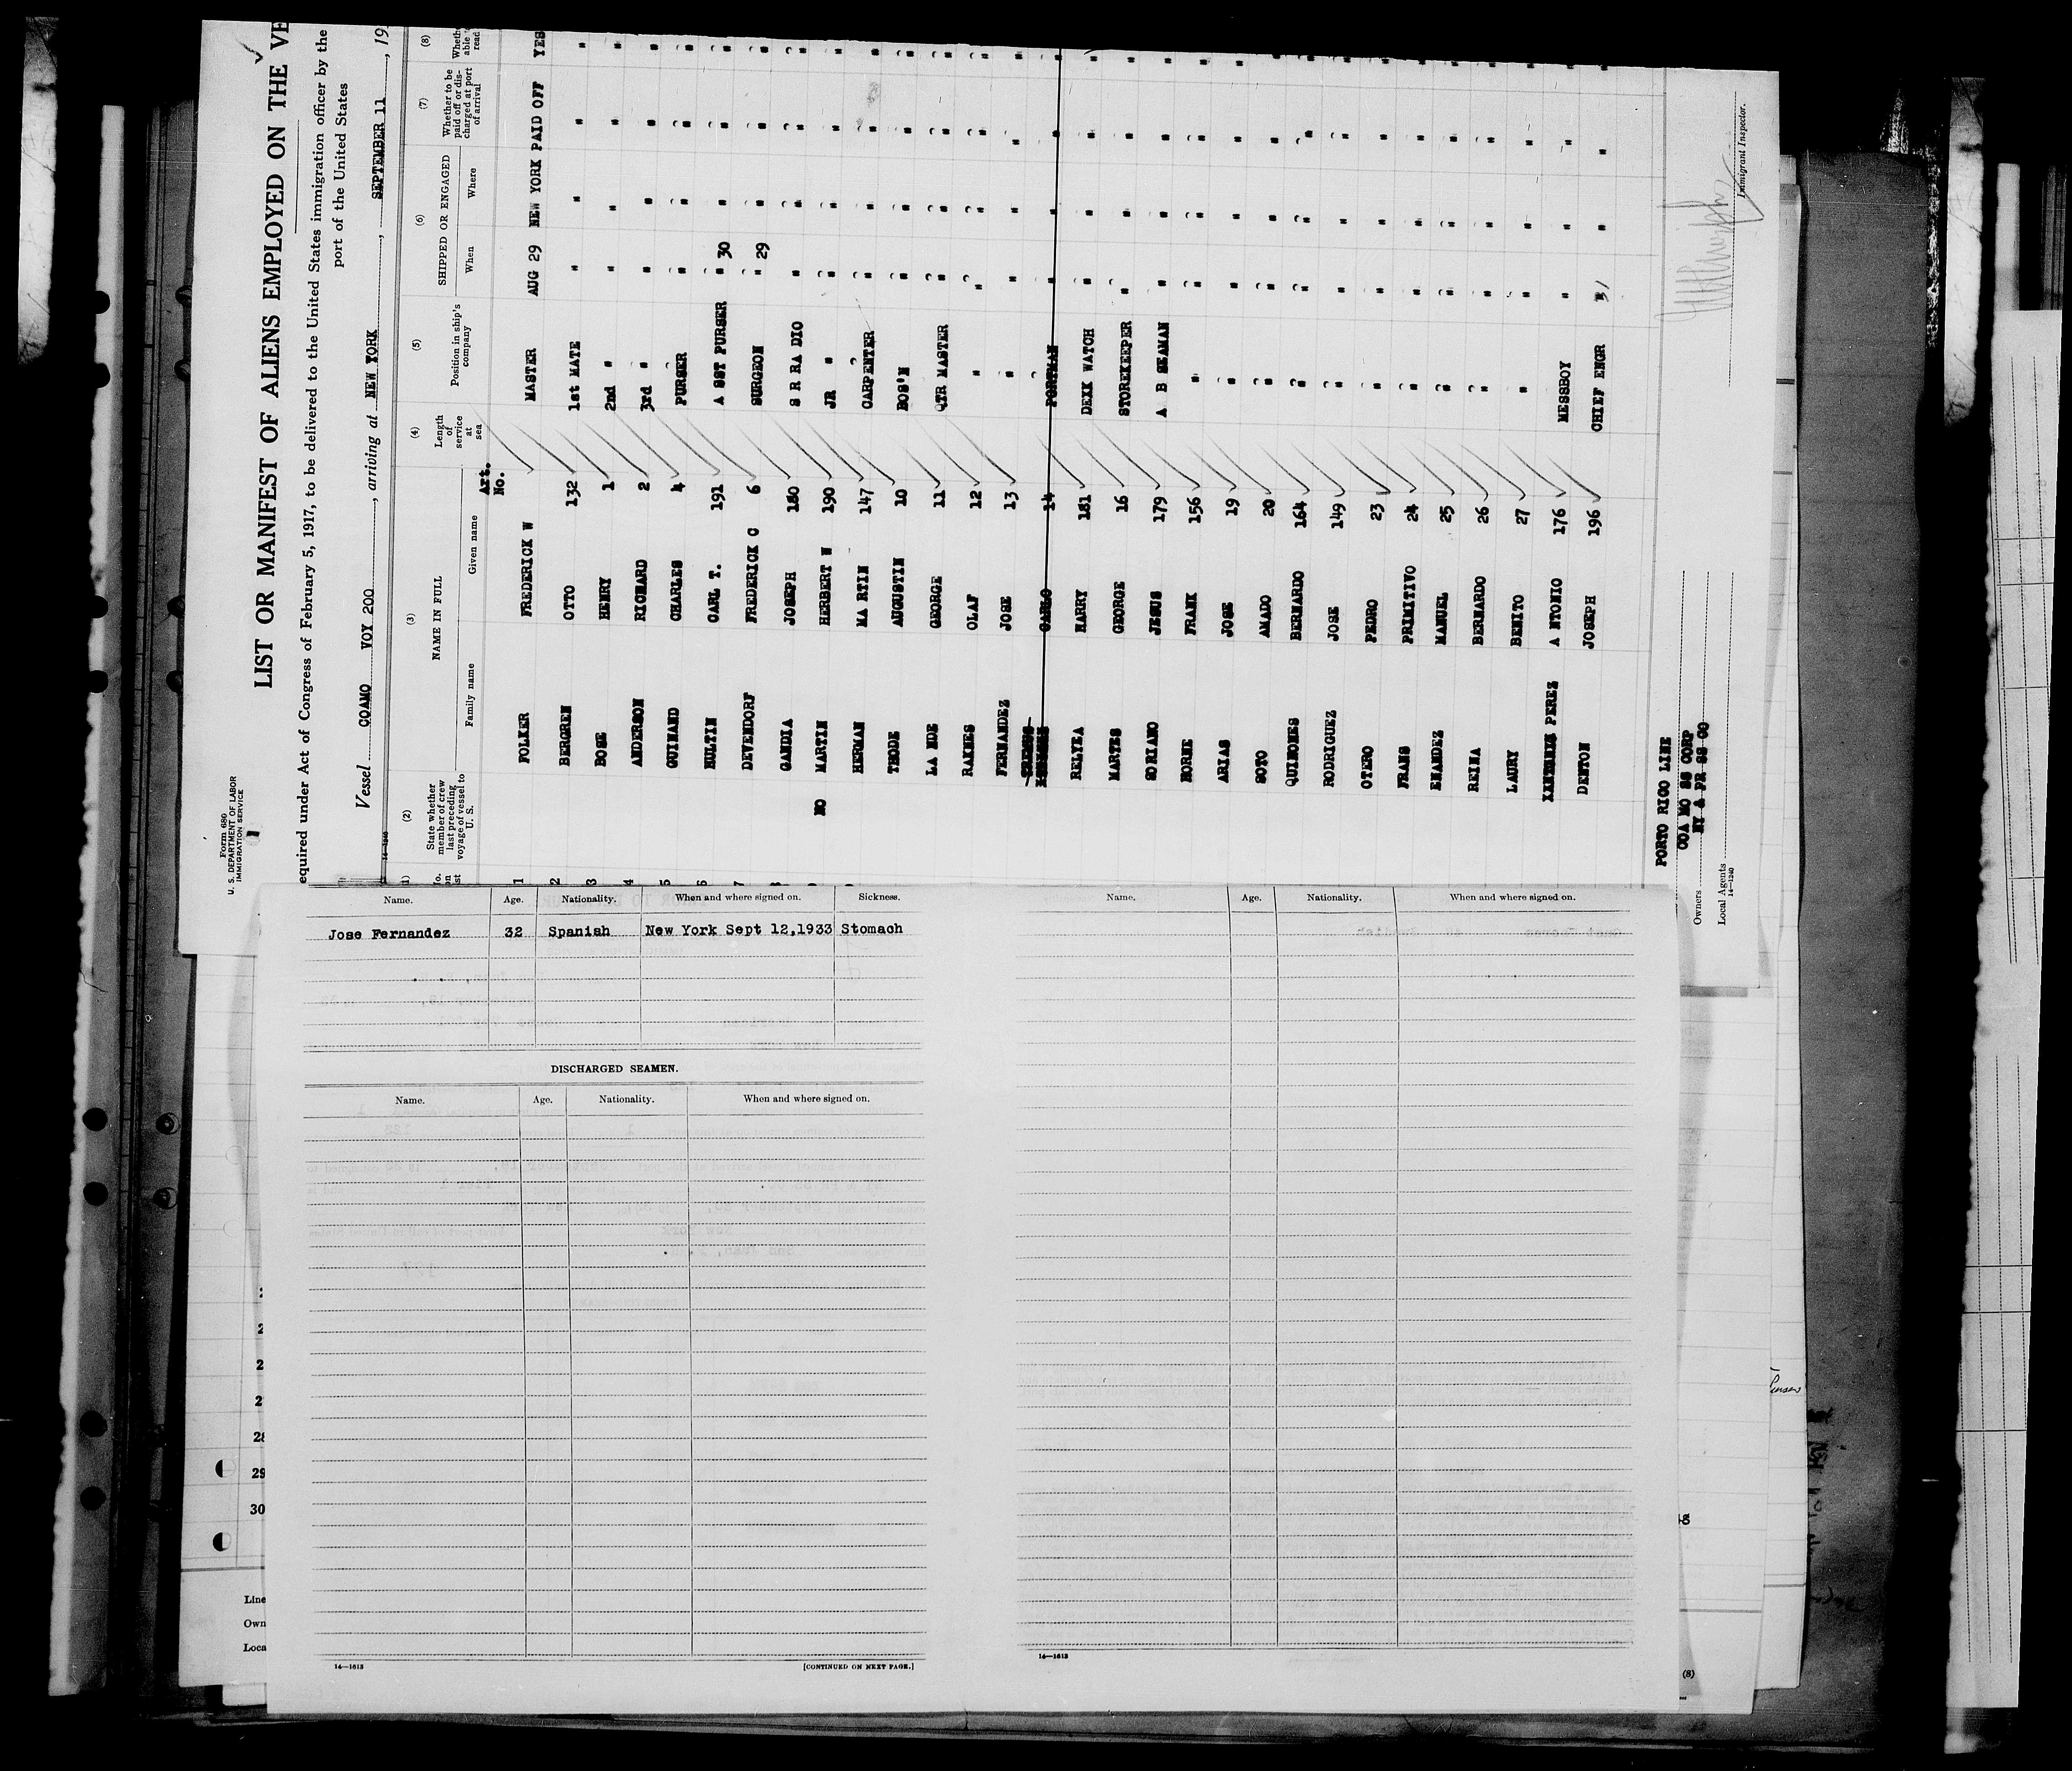 Form 680
U. S. DEPARTMENT OF LABOR
IMMIGRATION SERVICE
LIST OR MANIFEST OF ALIENS EMPLOYED ON THE VE
equired under Act of Congress of February 5, 1917, to be delivered to the United States immigration officer by the
port of the United States
Vessel COAMO VOY 200, arriving at NEW YORK, SEPTEMBER 11, 19
(2) (3) (4) (5) (6) (7) (8)
State whether member of crew last preceding voyage of vessel to U. S.
NAME IN FULL
Family name Given name
Length of service at sea
Position in ship's company
SHIPPED OR ENGAGED
When Where
Whether to be paid off or discharged at port of arrival
Art. No.
1 FOLKER FREDERICK W MASTER AUG 29 NEW YORK PAID OFF YES
2 BERGREN OTTO 132 1st MATE " " " "
3 BOSE HENRY 1 2nd " " " " "
4 ANDERSON RICHARD 2 3rd " " " " "
5 GUINAND CHARLES 4 PURSER " " " "
6 HULTIN CARL T. 191 A SST PURSER " 30 " " "
7 DEVENDORF FREDERICK C 6 SURGEON " 29 " " "
GANDIA JOSEPH 180 S R RA DIO " " " "
NO MARTIN HERBERT W 190 JR " " " " "
HERMAN MA RTIN 147 CARPENTER " " " "
THODE AUGUSTIN 10 BOS'N " " " "
LA NDE GEORGE 11 QTR MASTER " " " "
RAKNES OLAF 12 " " " " "
FERNANDEZ JOSE 13 " " " " "
CARLO 14 PORTMAN " " " "
RELYEA HARRY 181 DEKK WATCH " " " "
MARTES GEORGE 16 STOREKEEPER " " " "
SORIANO JESUS 179 A B SEAMAN " " " "
HORNE FRANK 156 " " " " "
ARIAS JOSE 19 " " " " "
SOTO AMADO 20 " " " " "
QUINONES BERNARDO 164 " " " " "
RODRIGUEZ JOSE 149 " " " " "
OTERO PEDRO 23 " " " " "
FRANS PRIMITIVO 24 " " " " "
ENANDEZ MANUEL 25 " " " " "
REINA BERNARDO 26 " " " " "
LAURY BENITO 27 " " " " "
PEREZ A NTONIO 176 MESSBOY " " " "
DENTON JOSEPH 196 CHIEF ENGR 31 " " "
PORTO RICO LINE
COA MO SS CORP
Owners NY & PR SS CO
Local Agents
14—1240
Immigrant Inspector.
Name. Age. Nationality. When and where signed on. Sickness.
Jose Fernandez 32 Spanish New York Sept 12,1933 Stomach
DISCHARGED SEAMEN.
Name. Age. Nationality. When and where signed on.
14—1613 [CONTINUED ON NEXT PAGE.]
Name. Age. Nationality. When and where signed on.
14—1613
28
29
30
Line
Own
Loca
(8)